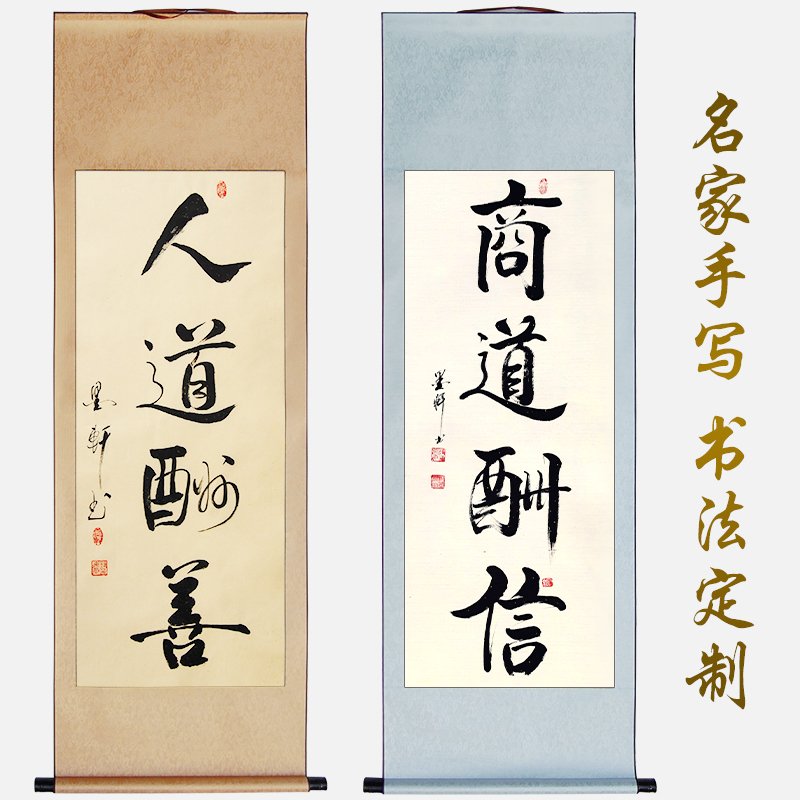 人道酬善
墨軒书
商道酬信
墨軒书
名家手写 书法定制